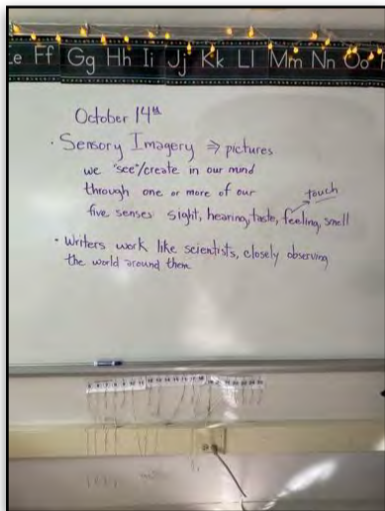 Ee Ff Gg Hh Ii Jj Kk Ll Mm Nn Oo
October 14th
• Sensory Imagery ⇒ pictures
we "see"/create in our mind
through one or more of our
touch
five senses sight, hearing, taste, feeling, smell
• Writers work like scientists, closely observing
the world around them